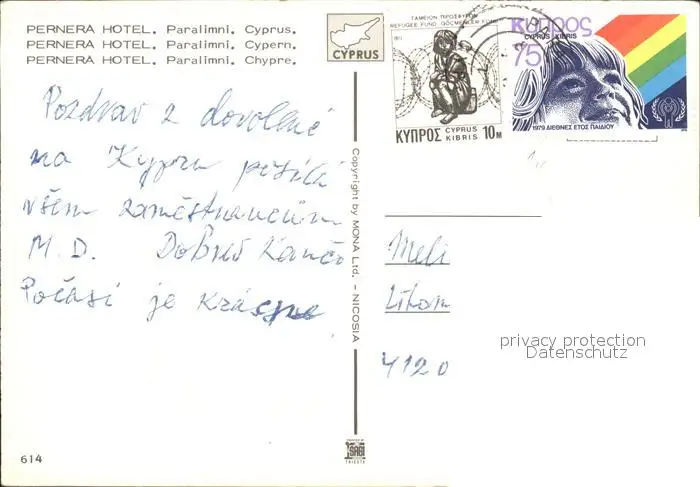 PERNERA HOTEL. Paralimni, Cyprus.
PERNERA HOTEL. Paralimni, Cypern.
PERNERA HOTEL. Paralimni, Chypre.
CYPRUS
ΤΑΜΕΙΟΝ ΠΡΟΣΦΥΓΩΝ
REFUGEE FUND GÖÇMENLER FONU
1977
ΚΥΠΡΟΣ CYPRUS KIBRIS 10M
Κύπρος
CYPRUS KIBRIS
75
1979 ΔΙΕΘΝΕΣ ΕΤΟΣ ΠΑΙΔΙΟΥ
Pozdrav z dovolené
na Kypru posílá
všem zaměstnancům
M.D. Dobreš
Počasí je krásné
Copyright by MONA Ltd. - NICOSIA
Meli
4120
privacy protection
Datenschutz
SAGI
TRIESTE
614